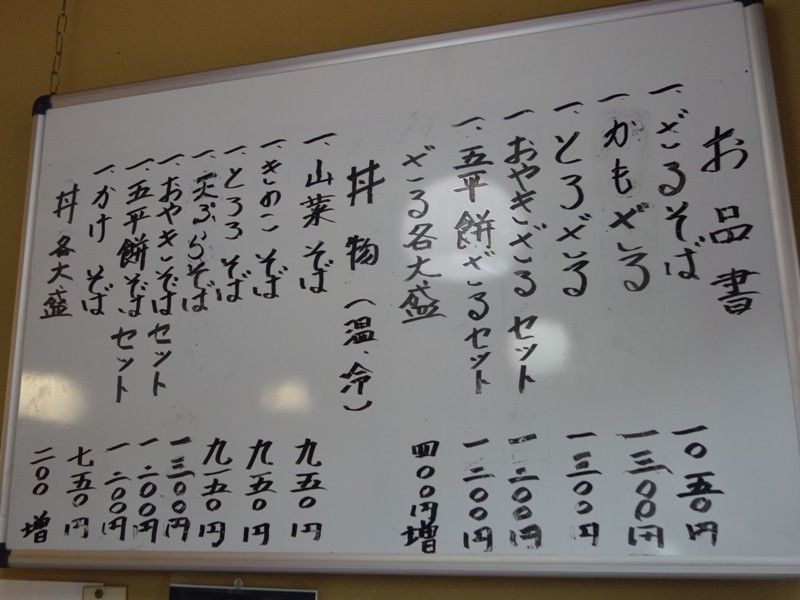 お品書
一、ざるそば 一〇五〇円
一、かもざる 一三〇〇円
一、とろざる 一三〇〇円
一、おやきざるセット 一二〇〇円
一、五平餅ざるセット 一二〇〇円
ざる各大盛 四〇〇円増
丼物(温、冷)
一、山菜そば 九五〇円
一、きのこそば 九五〇円
一、とろろそば 九五〇円
一、天ぷらそば 一三〇〇円
一、おやきそばセット 一二〇〇円
一、五平餅そばセット 一二〇〇円
一、かけそば 七五〇円
丼各大盛 二〇〇増